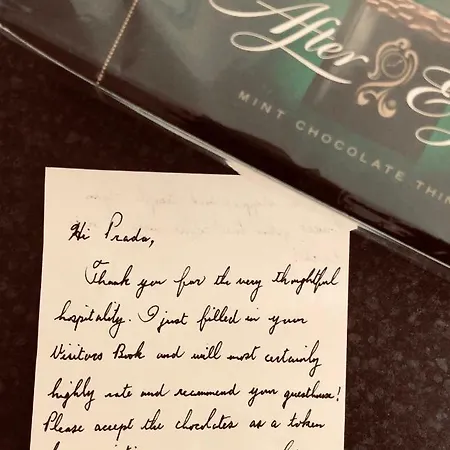 After E
MINT CHOCOLATE THIN
Hi Prada,
Thank you for the very thoughtful
hospitality. I just filled in your
Visitors Book and will most certainly
highly rate and recommend your guesthouse!
Please accept the chocolates as a token